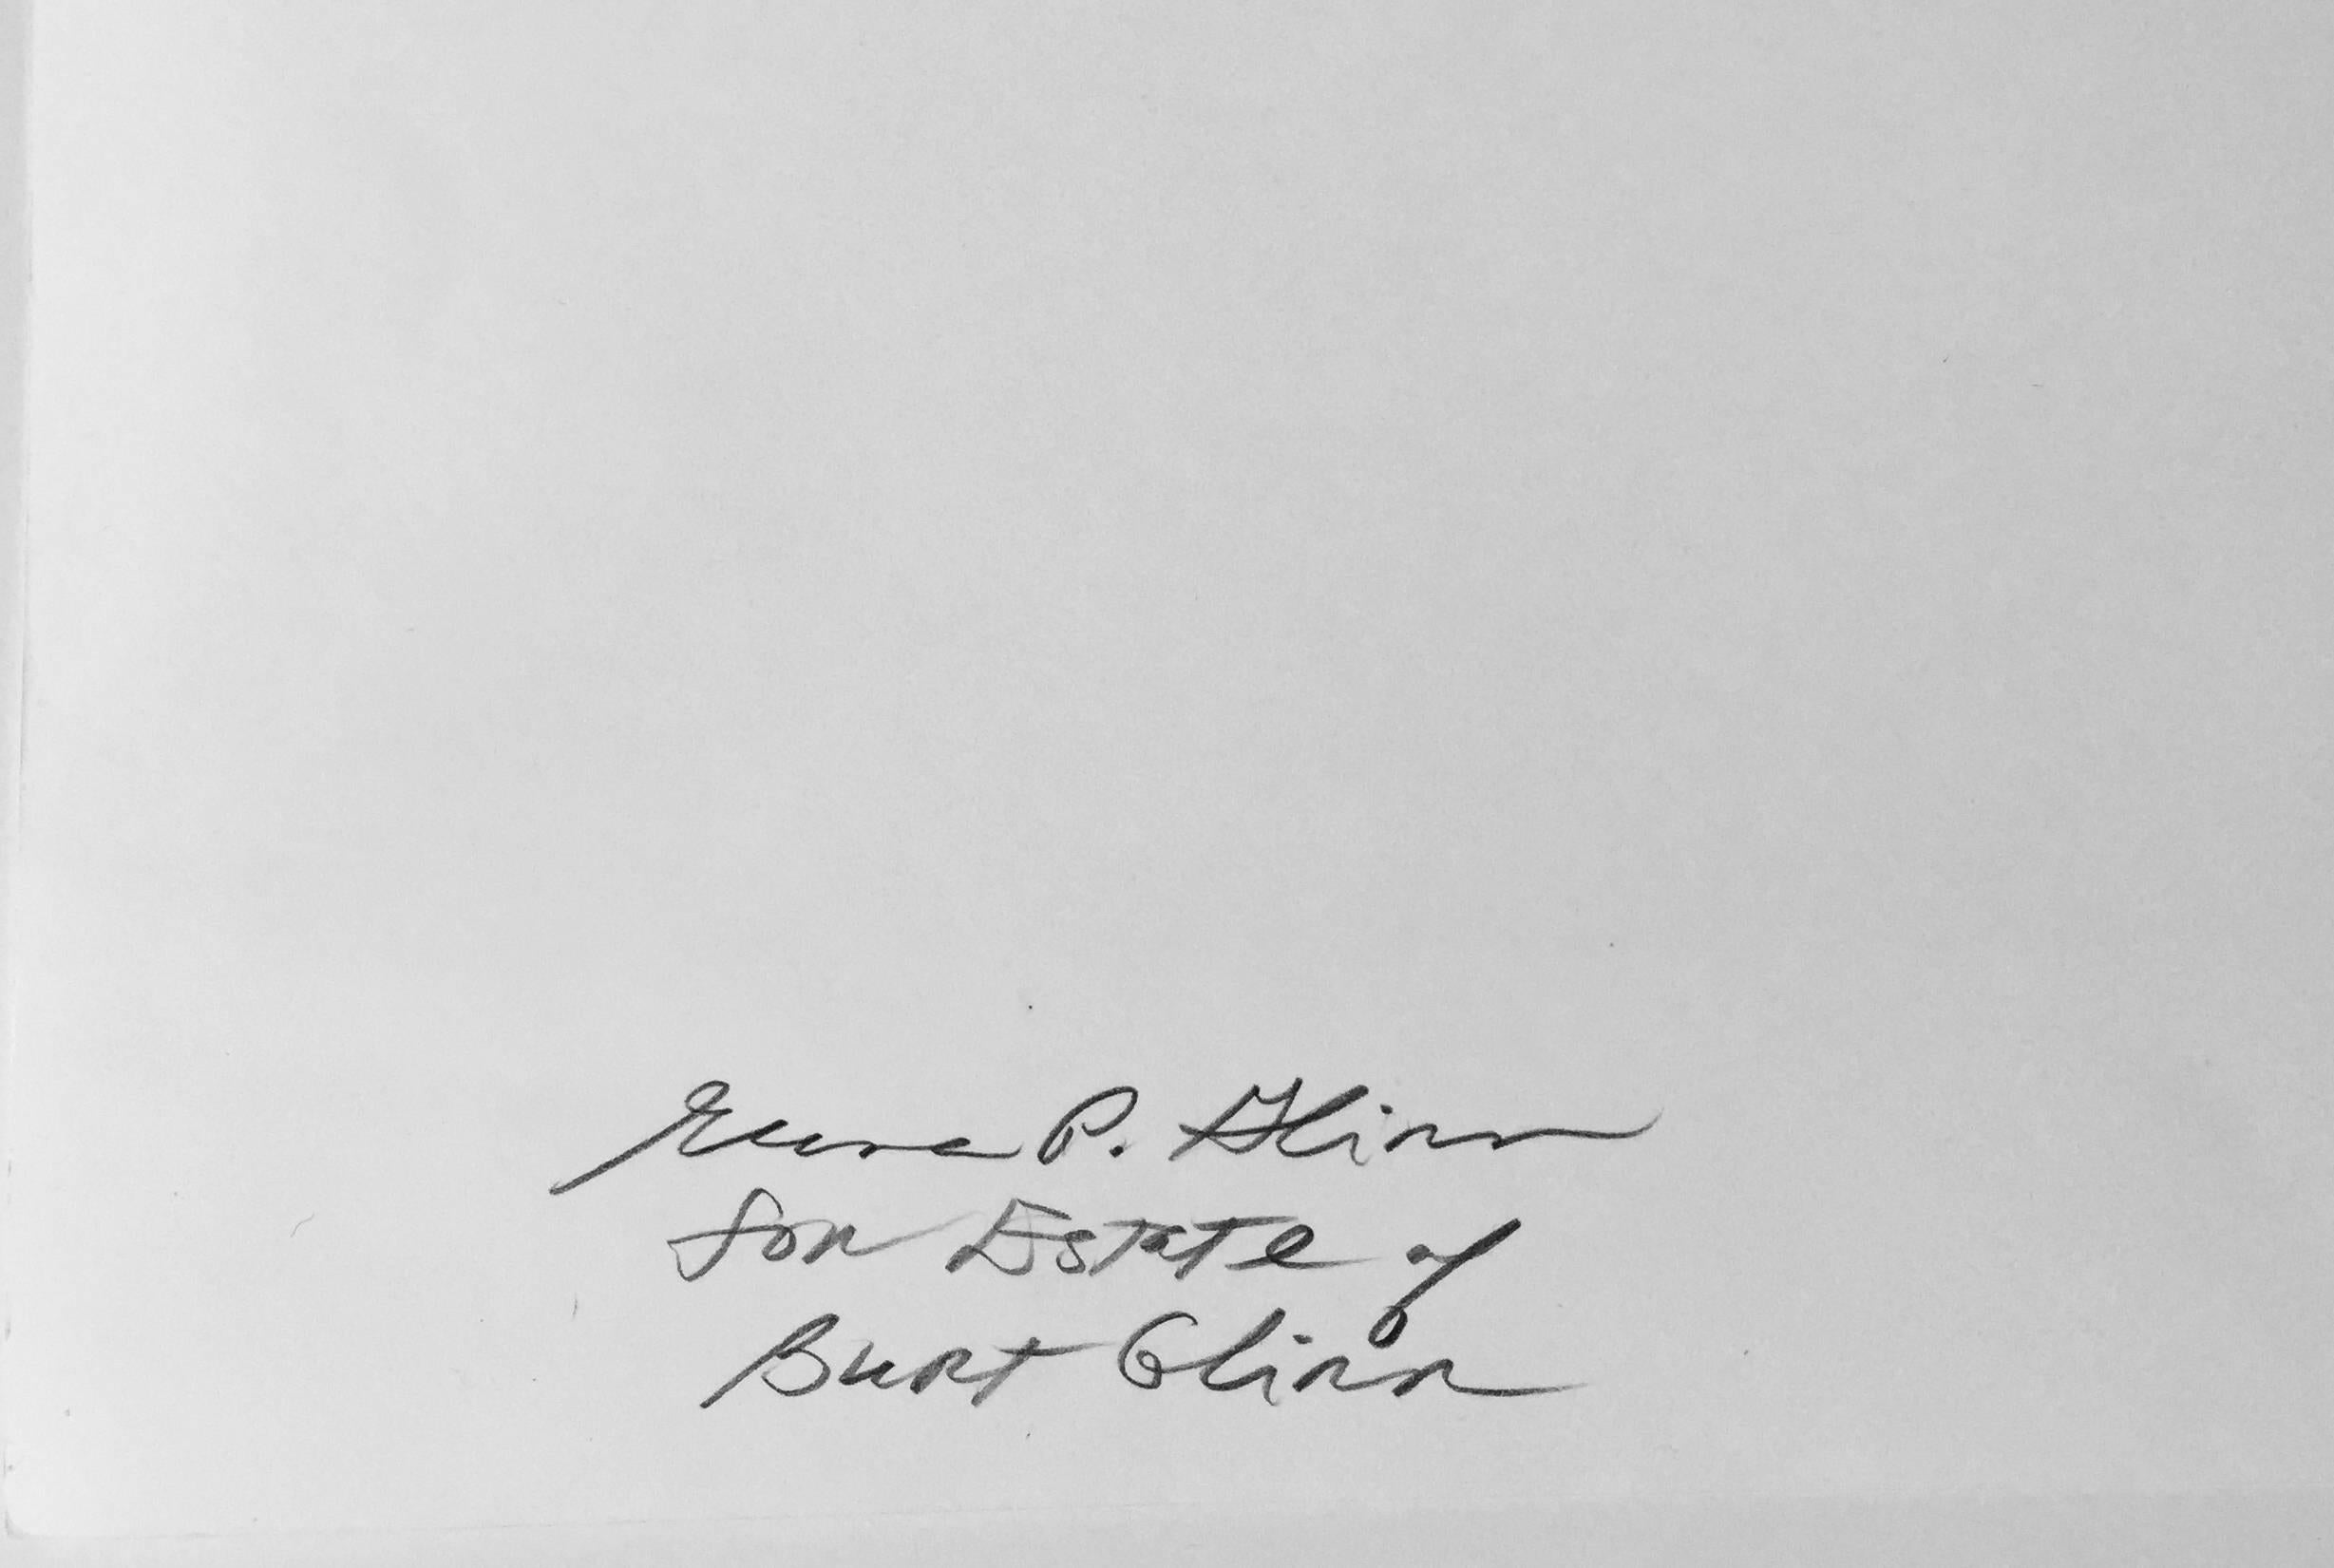 Elena P. Glinn
for Estate of
Burt Glinn